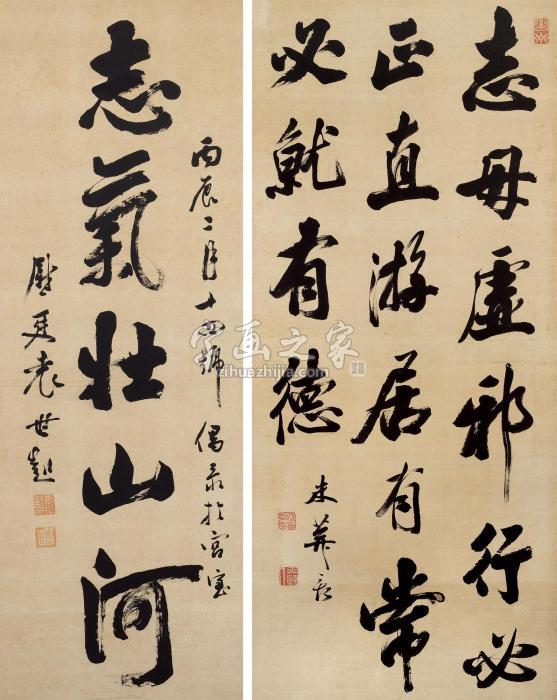 志毋虚邪行必
正直游居有常
必就有德
米葊
志氣壮山河
丙辰二月十四號 偶录於宫室
慰廷袁世凱
字画之家
zihuazhijia.com